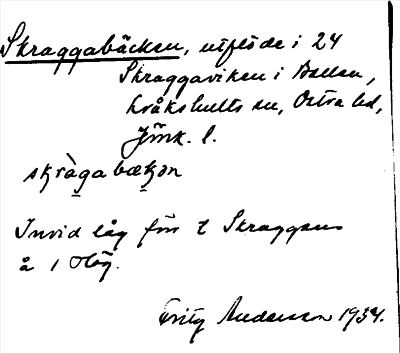 Skraggabäcken, utflöde i 24
Skraggaviken i Bollen,
Kråkshults sn, Östra hd,
Jönk. l.
skràgabækən
Invid låg förr t Skraggans
å 1 Höj.
Fritz Andersson 1934.